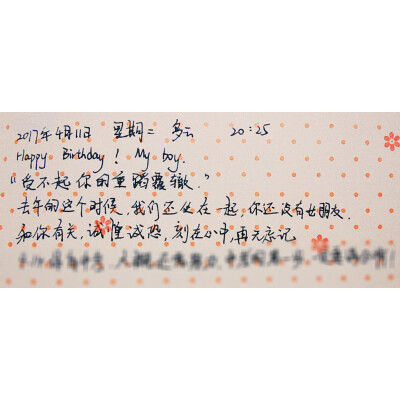 2017年4月11日 星期二 多云 20:25
Happy Birthday! My boy.
"负不起你的重蹈覆辙."
去年的这个时候,我们还坐在一起,你还没有女朋友.
和你有关,诚惶诚恐,刻在心中,再无忘记